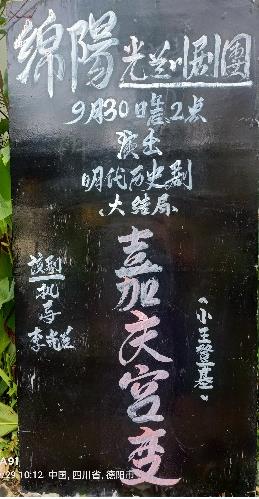 绵陽光兰川剧團
9月30日晚2点
演出
明代历史剧
大结局
嘉庆宫变
(小王登基)
该剧
机导
李光兰
A91
29 10:12 中国, 四川省, 德阳市